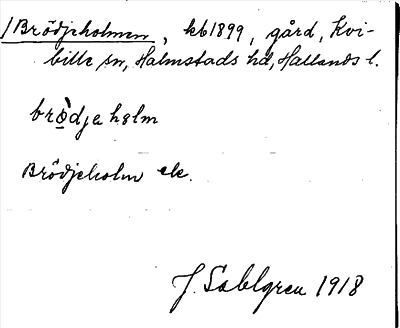 /Brödjeholmen, kb 1899, gård, Kvi-
bille sn, Halmstads hd, Hallands l.
brò̤djahəlm
Brödjeholm ek.
J. Sahlgren 1918